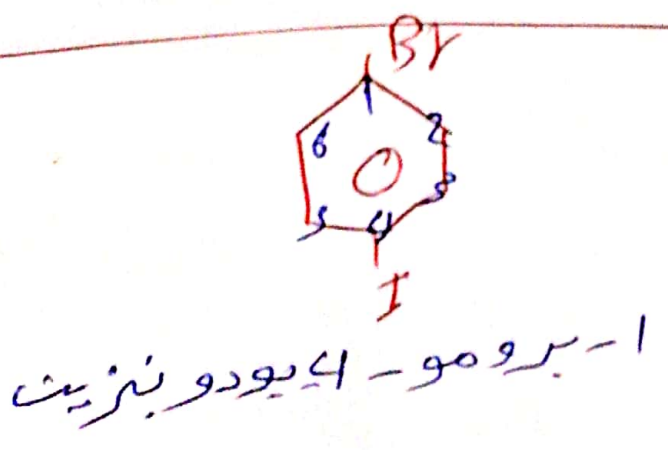 Br
1
6
2
3
5
4
I
1- برومو - 4 يودو بنزين